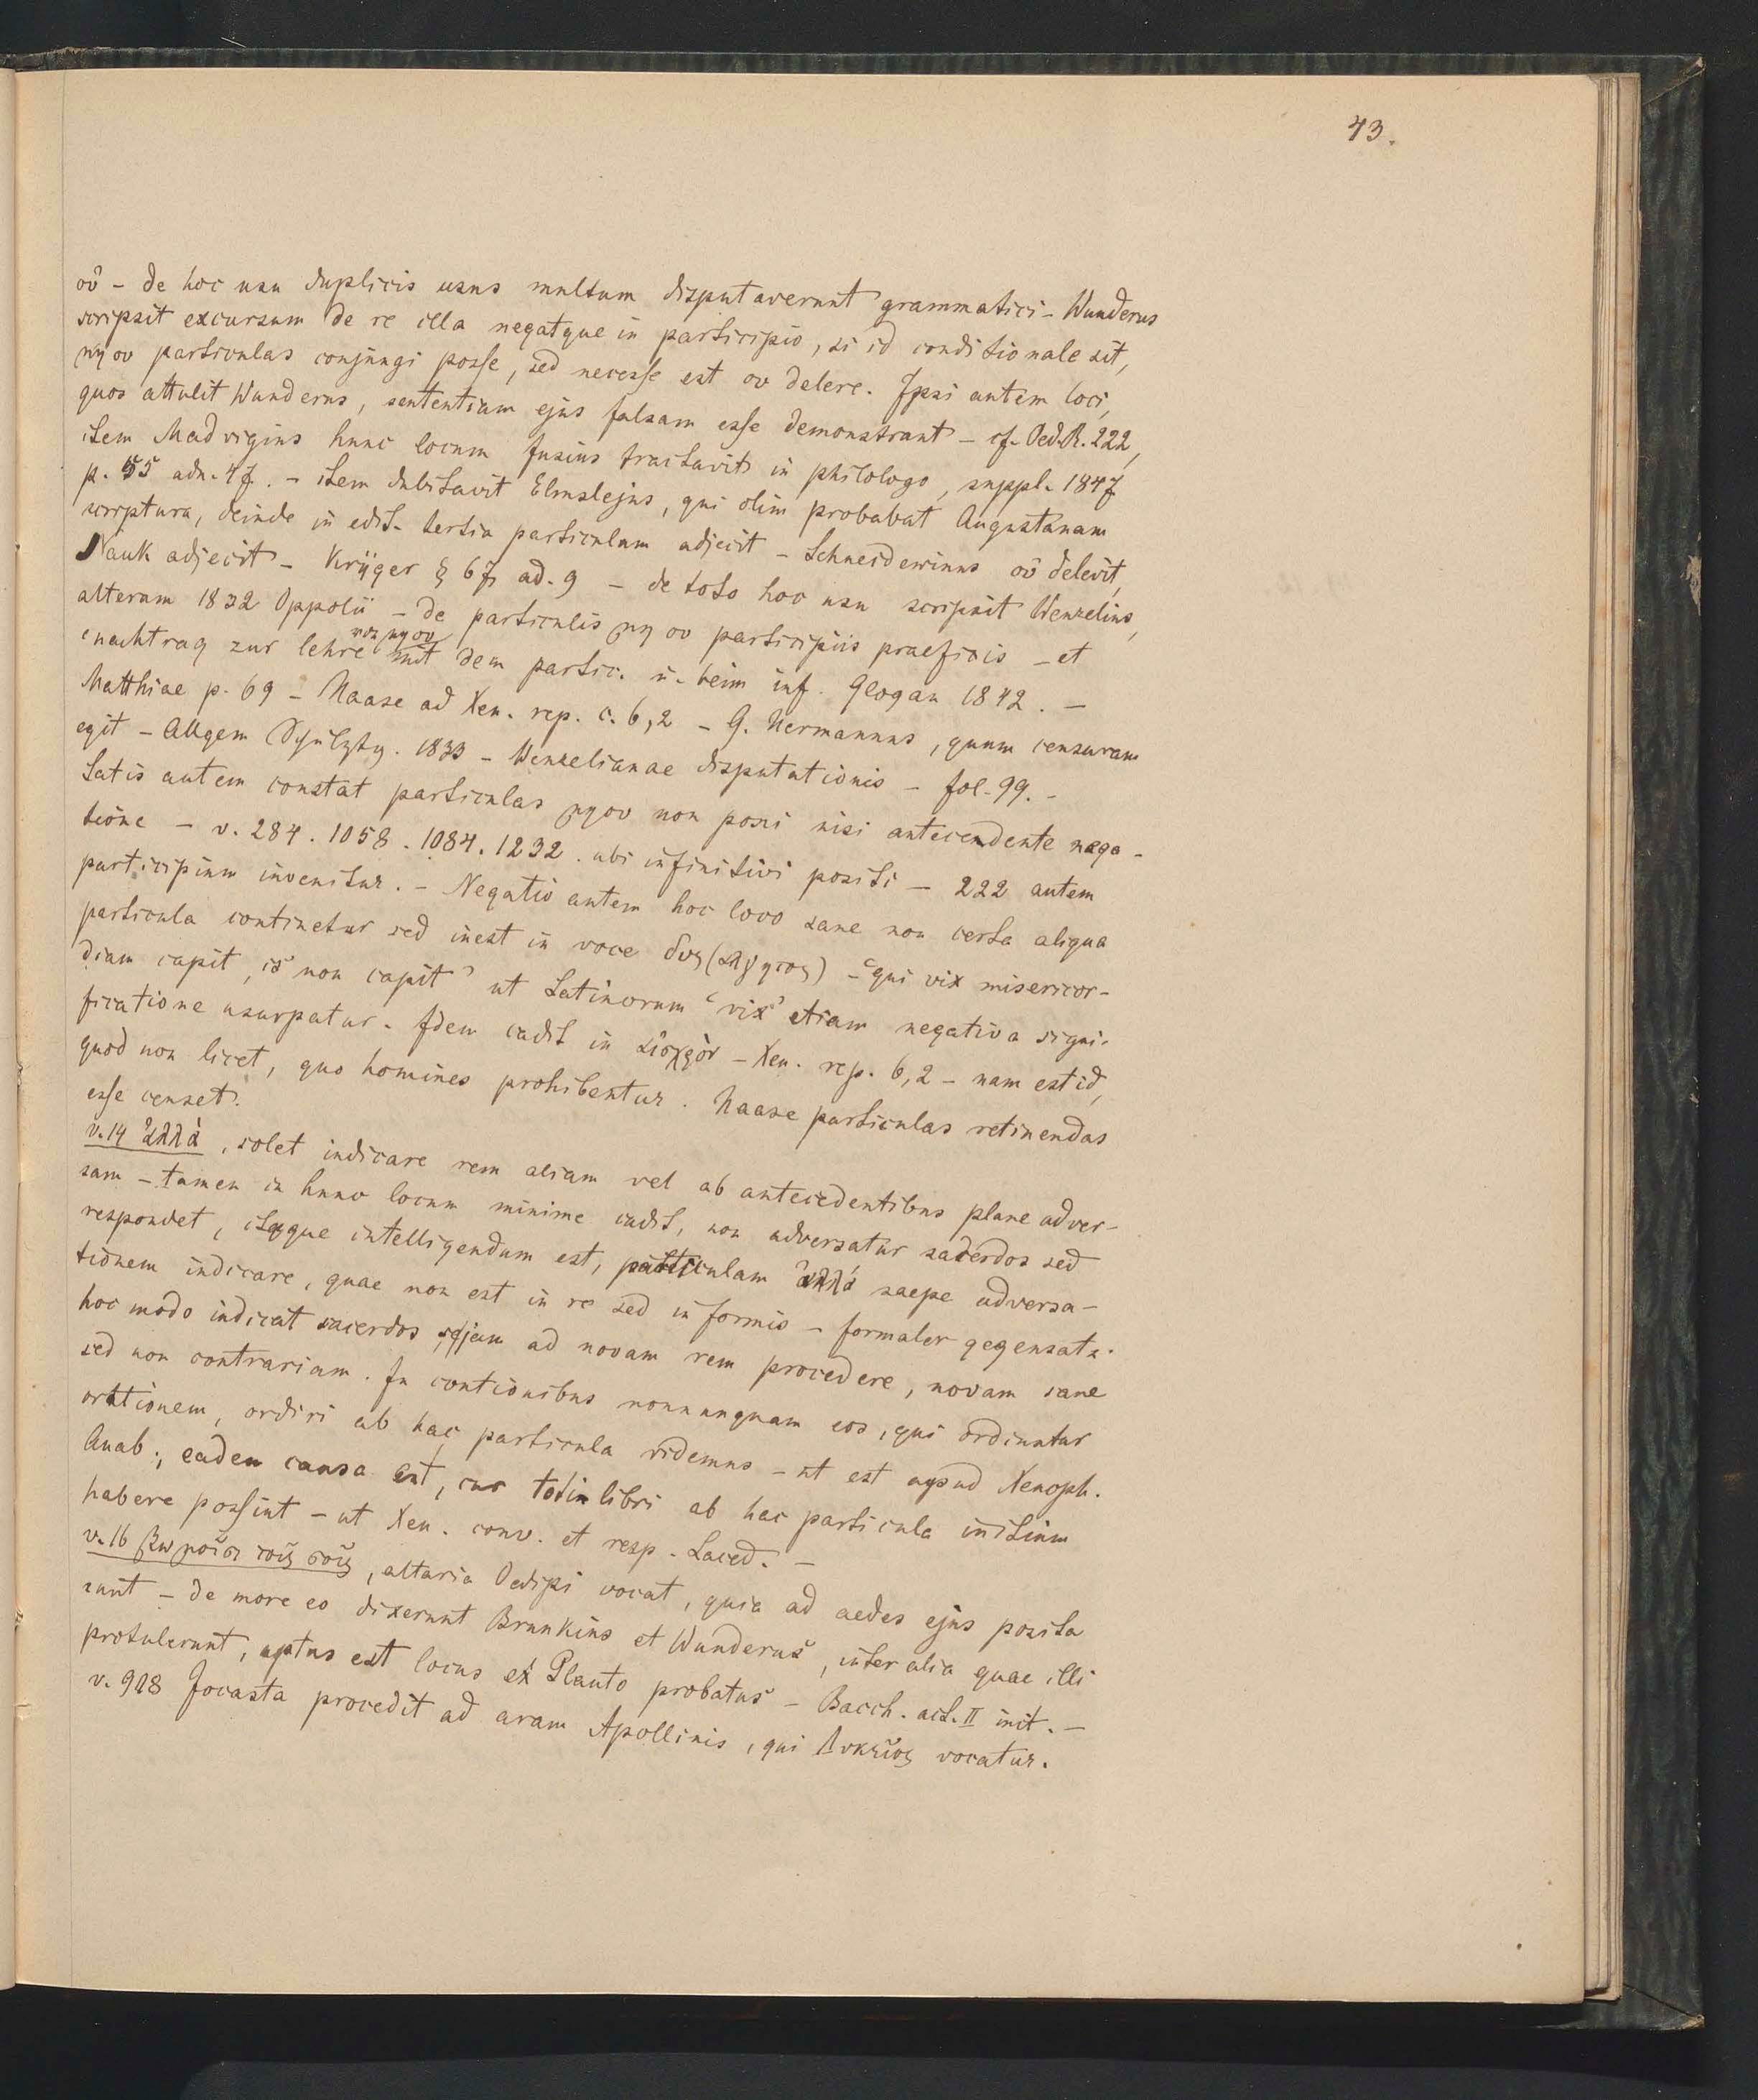 43.
οὐ – de hoc usu duplicis usus multum disputaverunt grammatici – Wunderus
scripsit excursum de re illa negatque in participio, si id conditionale sit,
μη ου particulas conjungi posse, sed necesse est ου delere. Ipsi autem loci,
quos attulit Wunderus, sententiam ejus falsam esse demonstrant – cf. Oed. R. 222,
item Madvigius hunc locum fusius tractavit in philologo, suppl. 1847
p. 55 adn. 47. – item dubitavit Elmslejus, qui olim probabat Augustanam
scripturam, deinde in edit. tertia particulam adjecit – Schneidewinus οὐ delevit,
Nauk adjecit – Krüger § 67, ad. 9 – de toto hoc usu scripsit Wenzelius,
alteram 1832 Oppolii – de particulis μη ου participiis praefixis – et
von μη ου
'nachtrag zur lehre mit dem partic. u. beim inf. Glogau 1842. –
Matthiae p. 69 – Haase ad Xen. rep. c. 6,2 – G. Hermannus, quum censuram
egit – Allgem Schulztg. 1833 – Wenzelianae disputationis – fol. 99. –
Satis autem constat particulas μη ου non poni nisi antecendente nega-
tione – v. 284. 1058. 1084. 1232. ubi infinitivi positi – 222 autem
participium invenitur. – Negatio autem hoc loco sane non certa aliqua
particula continetur sed inest in voce δυς(αλγητος) – 'qui vix misericor-
diam capit, is non capit' ut Latinorum 'vix' etiam negativa signi-
ficatione usurpatur. Idem cadit in αἰσχρὸν – Xen. rep. 6,2 – nam est id,
quod non licet, quo homines prohibentur. Haase particulas retinendas
esse censet.
v. 14 ἀλλὰ, solet indicare rem aliam vel ab antecedentibus plane adver-
sam – tamen in hunc locum minime cadit, non adversatur sacerdos sed
respondet, itaque intelligendum est, particulam ἀλλὰ saepe adversa-
tionem indicare, quae non est in re sed in formis – formaler gegensatz.
hoc modo indicat sacerdos, se jam ad novam rem procedere, novam sane
sed non contrariam. In contionibus nonnunquam eos, qui ordiuntur
orationem, ordiri ab hac particula videmus – ut est apud Xenoph.
Anab., eadem causa est, cur toti libri ab hac particula initium
habere possint – ut Xen. conv. et resp. Laced. –
v. 16 βωμοῖσι τοῖς σοῖς, altaria Oedipi vocat, quia ad aedes ejus posita
sunt – de more eo dixerunt Brunkius et Wunderus, inter alia quae illi
protulerunt, aptus est locus ex Plauto probatus – Bacch. act. II init. –
v. 918 Jocasta procedit ad aram Apollinis, qui Λυκεῖος vocatur.